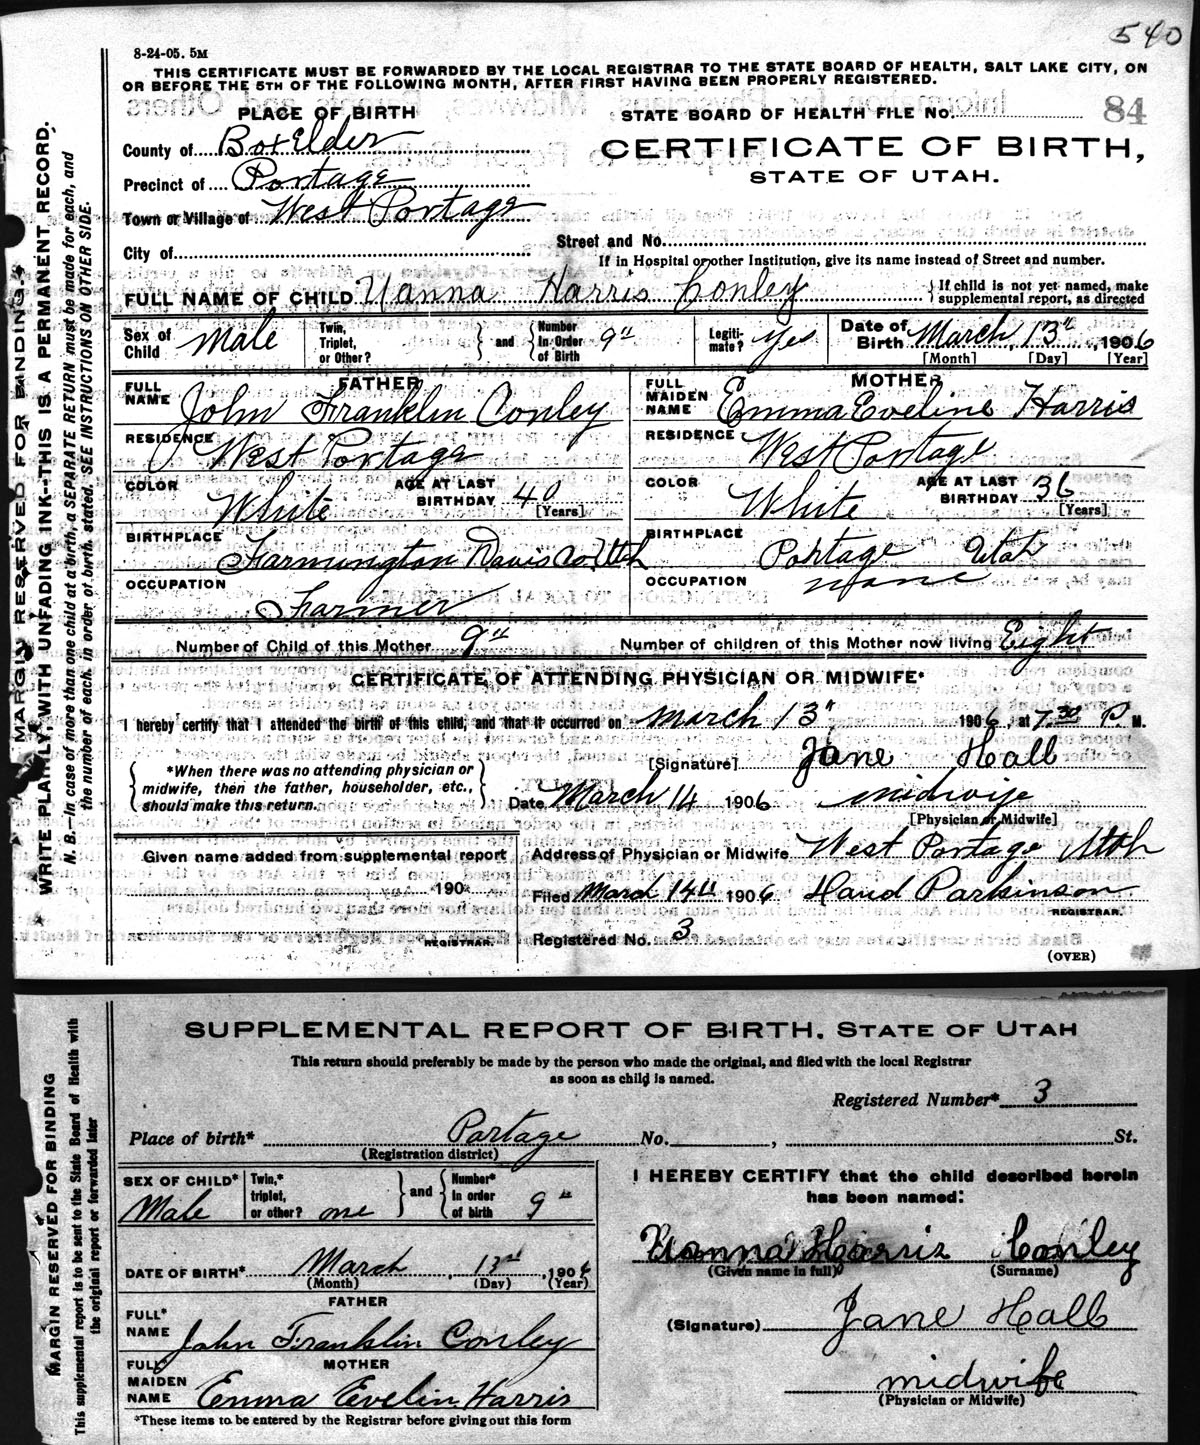 540
8-24-05. 5M
THIS CERTIFICATE MUST BE FORWARDED BY THE LOCAL REGISTRAR TO THE STATE BOARD OF HEALTH, SALT LAKE CITY, ON
OR BEFORE THE 5TH OF THE FOLLOWING MONTH, AFTER FIRST HAVING BEEN PROPERLY REGISTERED.
PLACE OF BIRTH
STATE BOARD OF HEALTH FILE No. 84
County of Box Elder
CERTIFICATE OF BIRTH,
Precinct of Portage
STATE OF UTAH.
Town or Village of West Portage
Street and No.
City of
If in Hospital or other Institution, give its name instead of Street and number.
FULL NAME OF CHILD Vanna Harris Conley { If child is not yet named, make supplemental report, as directed
Sex of Child Male Twin, Triplet, or Other? } and { Number In Order of Birth 9" Legiti- mate? yes Date of Birth March 13" , 1906
[Month] [Day] [Year]
FATHER
MOTHER
FULL NAME John Franklin Conley
FULL MAIDEN NAME Emma Eveline Harris
RESIDENCE West Portage
RESIDENCE West Portage
COLOR White AGE AT LAST BIRTHDAY 40 [Years]
COLOR White AGE AT LAST BIRTHDAY 36 [Years]
BIRTHPLACE Farmington Davis Co. Utah
BIRTHPLACE Portage Utah
OCCUPATION Farmer
OCCUPATION none
Number of Child of this Mother 9" Number of children of this Mother now living Eight
CERTIFICATE OF ATTENDING PHYSICIAN OR MIDWIFE*
I hereby certify that I attended the birth of this child, and that it occurred on March 13" 1906, at 7.30 P M.
[Signature] Jane Hall
{ *When there was no attending physician or midwife, then the father, householder, etc., should make this return. }
Date March 14 1906 midwife
[Physician or Midwife]
Given name added from supplemental report
Address of Physician or Midwife West Portage Utah
190
Filed March 14" 1906 Parkinson
REGISTRAR.
REGISTRAR.
Registered No. 3
(OVER)
MARGIN RESERVED FOR BINDING.
WRITE PLAINLY, WITH UNFADING INK--THIS IS A PERMANENT RECORD.
N. B.—In case of more than one child at a birth, a SEPARATE RETURN must be made for each, and
the number of each, in order of birth, stated. SEE INSTRUCTIONS ON OTHER SIDE.
SUPPLEMENTAL REPORT OF BIRTH, STATE OF UTAH
This return should preferably be made by the person who made the original, and filed with the local Registrar
as soon as child is named.
Registered Number* 3
Place of birth* Portage No. , St.
(Registration district)
SEX OF CHILD* Male Twin,* triplet, or other? one } and { Number* In order of birth 9"
I HEREBY CERTIFY that the child described herein
has been named:
Vanna Harris Conley
(Given name in full) (Surname)
DATE OF BIRTH* March , 13" , 1906
(Month) (Day) (Year)
FATHER
FULL* NAME John Franklin Conley
(Signature) Jane Hall
MOTHER
FULL MAIDEN NAME Emma Evelin Harris
midwife
(Physician or Midwife)
*These items to be entered by the Registrar before giving out this form
MARGIN RESERVED FOR BINDING
This supplemental report is to be sent to the State Board of Health with
the original report or forwarded later